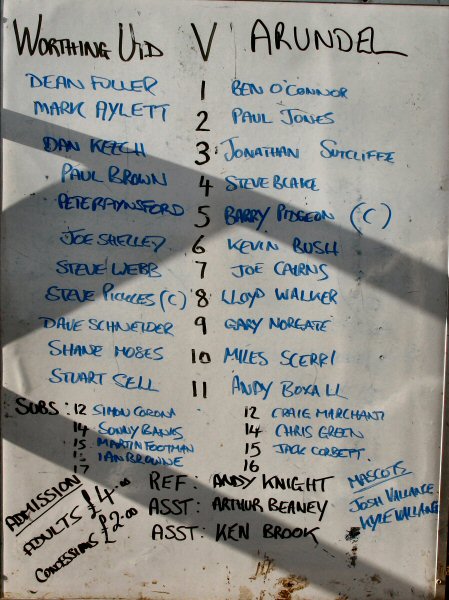 WORTHING UTD V ARUNDEL
DEAN FULLER 1 BEN O'CONNOR
MARK AYLETT 2 PAUL JONES
DAN KEECH 3 JONATHAN SUTCLIFFE
PAUL BROWN 4 STEVE BLAKE
PETE RAYNSFORD 5 BARRY PIDGEON (C)
JOE SHELLEY 6 KEVIN BUSH
STEVE WEBB 7 JOE CAIRNS
STEVE PICKLES (C) 8 LLOYD WALKER
DAVE SCHNEIDER 9 GARY NORGATE
SHANE MOSES 10 MILES SCERRI
STUART CELL 11 ANDY BOXALL
SUBS: 12 SIMON CORONA 12 CRAIG MARCHANT
14 SONNY BANKS 14 CHRIS GREEN
15 MARTIN FOOTMAN 15 JACK CORBETT.
IAN BROWNE 16
17
REF: ANDY KNIGHT
ASST: ARTHUR BEANEY
ASST: KEN BROOK
ADMISSION
ADULTS £4.00
CONCESSIONS £2.00
MASCOTS
JOSH VALLANCE
KYLE VALLANCE